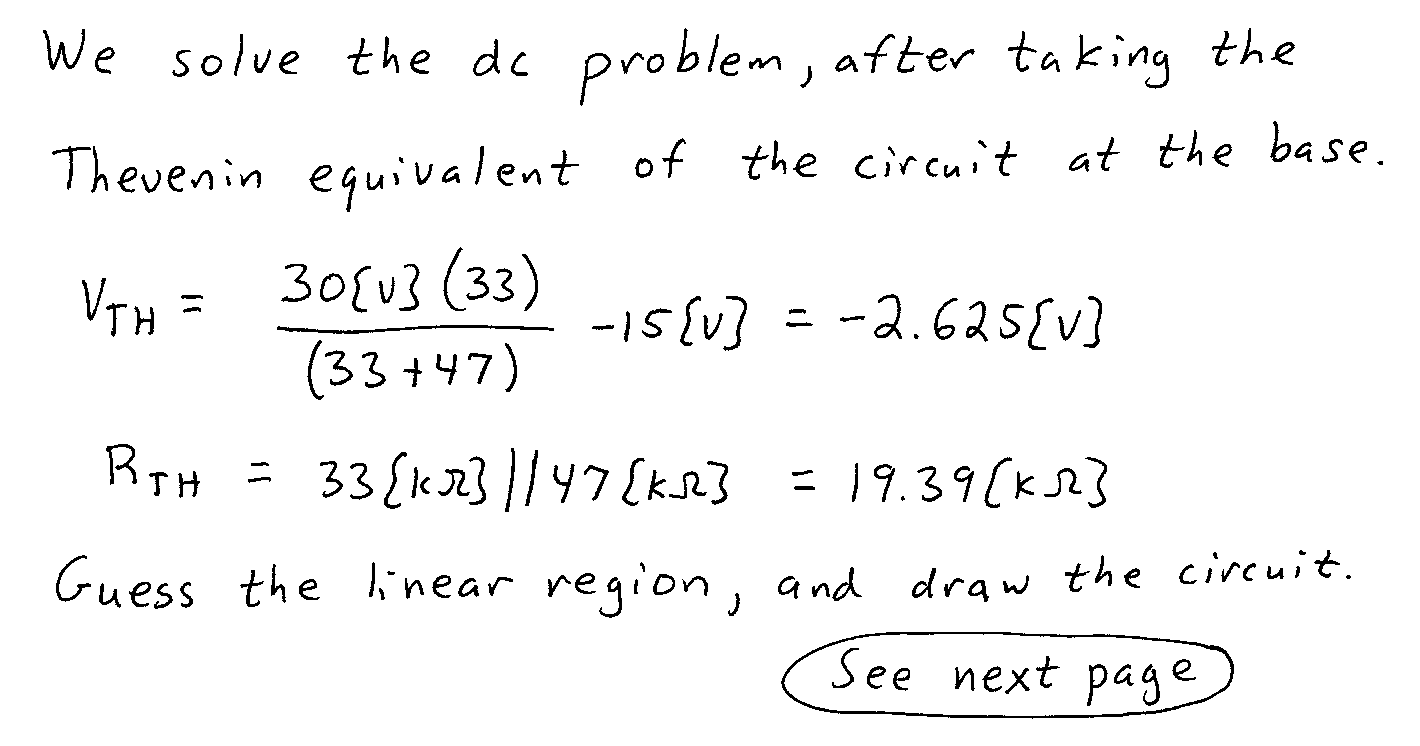 We solve the dc problem, after taking the
Thevenin equivalent of the circuit at the base.
V_TH = 30[v] (33) / (33+47) - 15[v] = -2.625[v]
R_TH = 33[kΩ] || 47[kΩ] = 19.39[kΩ]
Guess the linear region, and draw the circuit.
See next page